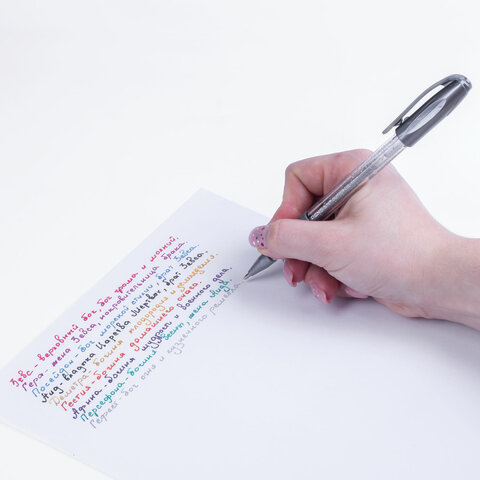 Зевс - верховный бог, бог грома и молний.
Гера - жена Зевса, покровительница брака.
Посейдон - бог морской стихии, брат Зевса.
Аид - владыка Царства Мертвых, брат Зевса.
Деметра - богиня плодородия и земледелия.
Гестия - богиня домашнего очага.
Афина - богиня мудрости и военного дела.
Персефона - богиня весны, жена Аида.
Гефест - бог огня и кузнечного ремесла